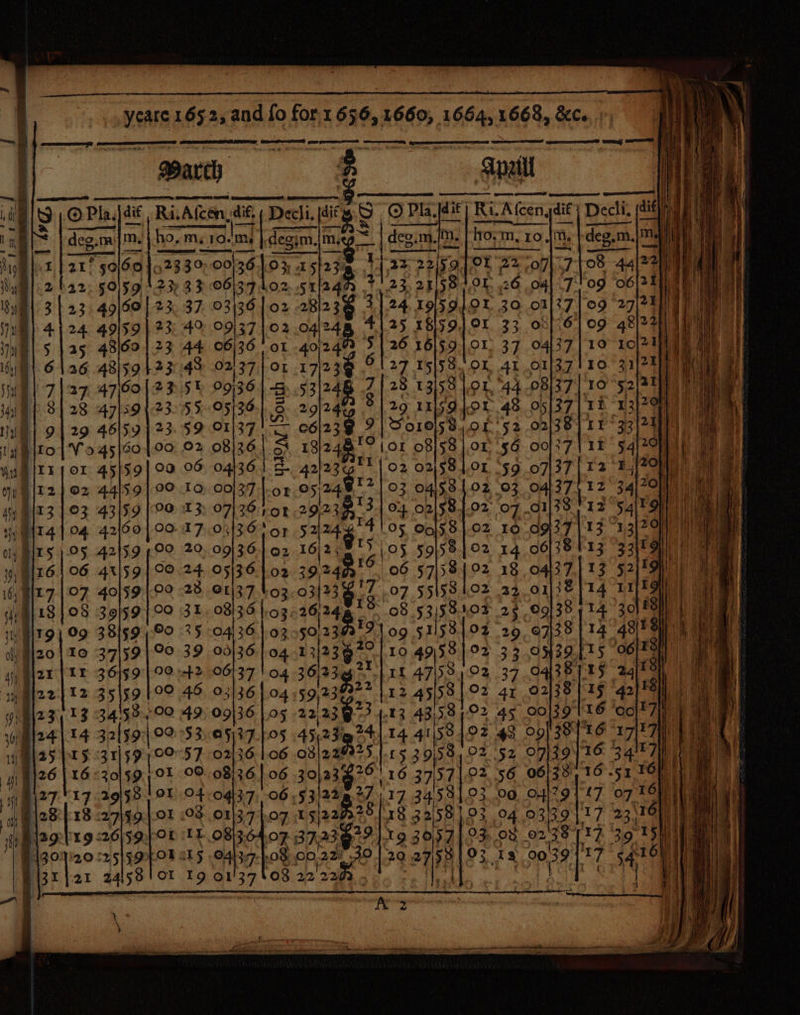 yeare 1652, and ſo for 1656, 1660, 1664, 1668, &c.
March Aprill
☉ Pla. dif Ri. Aſcen. dif. Decli. dif ☉ Pla. dif Ri. Aſcen. dif Decli. dif
deg. m m. ho. m. 10. m. deg. m. m. deg. m. m. ho. m. 10. m. deg. m. m
1 21 50 60 23 30 00 36 03 15 23 1 22 22 59 01 22 07 7 08 44 22
2 22 50 59 23 33 06 37 02 51 24 2 23 21 58 01 26 04 7 09 06 21
3 23 49 60 23 37 03 36 02 28 23 3 24 19 59 01 30 01 37 09 27 21
4 24 49 59 23 40 09 37 02 04 24 4 25 18 59 01 33 08 6 09 48 22
5 25 48 60 23 44 06 36 01 40 24 5 26 16 59 01 37 04 37 10 10 21
6 26 48 59 23 48 02 37 01 17 23 6 27 15 58 01 41 01 37 10 31 21
7 27 47 60 23 51 09 36 53 24 7 28 13 58 01 44 08 37 10 52 21
8 28 47 59 23 55 05 36 South 29 24 8 29 11 59 01 48 05 37 11 13 20
9 29 46 59 23 59 01 37 06 23 9 ♉ 10 58 01 52 02 38 11 33 21
10 ♈ 45 60 00 02 08 36 North 18 24 10 01 08 58 01 56 00 37 11 54 20
11 01 45 59 00 06 04 36 42 23 11 02 02 58 01 59 07 37 12 20
12 02 44 59 00 10 00 37 01 05 24 12 03 04 58 02 03 04 37 12 34 20
13 03 43 59 00 13 07 36 01 29 23 13 04 02 58 02 07 01 38 12 54 19
14 04 42 60 00 17 03 36 01 52 24 14 05 00 58 02 10 09 37 13 13 20
15 05 42 59 00 20 09 36 02 16 15 05 59 58 02 14 06 38 13 33 19
16 06 41 59 00 24 05 36 02 39 24 16 06 57 58 02 18 04 37 13 52 19
17 07 40 59 00 28 01 37 03 03 23 17 07 55 58 02 22 01 38 14 11 19
18 08 39 59 00 31 08 36 03 26 24 18 08 53 58 02 25 09 38 14 30 18
19 09 38 59 00 35 04 36 03 50 23 19 09 51 58 02 29 07 38 14 48 18
20 10 37 59 00 39 00 36 04 13 23 20 10 49 58 02 33 05 39 15 06 18
21 11 36 59 00 42 06 37 04 36 23 21 11 47 58 02 37 04 38 15 24 18
22 12 35 59 00 46 03 36 04 59 23 22 12 45 58 02 41 02 38 15 42 18
23 13 34 58 00 49 09 36 05 22 23 23 13 43 58 02 45 00 39 16 00 17
24 14 32 59 00 53 05 37 05 45 23 24 14 41 58 02 48 09 38 16 17 17
25 15 31 59 00 57 02 36 06 08 22 25 15 39 58 02 52 07 39 16 34 17
26 16 30 59 01 00 08 36 06 30 23 26 16 37 57 02 56 06 38 16 51 16
27 17 29 58 01 04 04 37 06 53 22 27 17 34 58 03 00 04 29 17 07 16
28 18 27 59 01 08 01 37 07 15 22 28 18 32 58 03 04 03 39 17 23 16
29 19 26 59 01 11 08 36 07 37 23 29 19 30 57 03 08 02 38 17 39 15
30 20 25 59 01 15 04 37 08 00 22 30 20 27 58 03 12 00 39 17 54 16
31 21 24 58 01 19 01 37 08 22 22
A 2